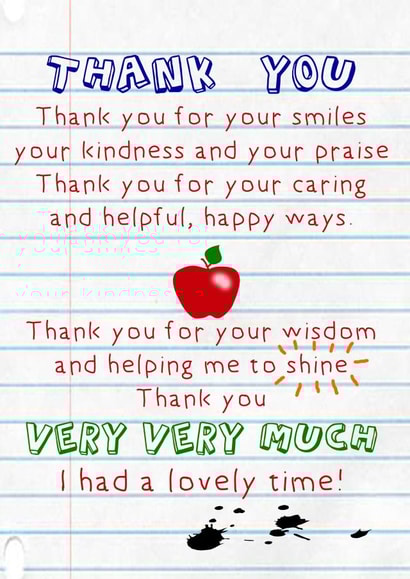 THANK YOU
Thank you for your smiles
your kindness and your praise
Thank you for your caring
and helpful, happy ways.
Thank you for your wisdom
and helping me to shine
Thank you
VERY VERY MUCH
I had a lovely time!